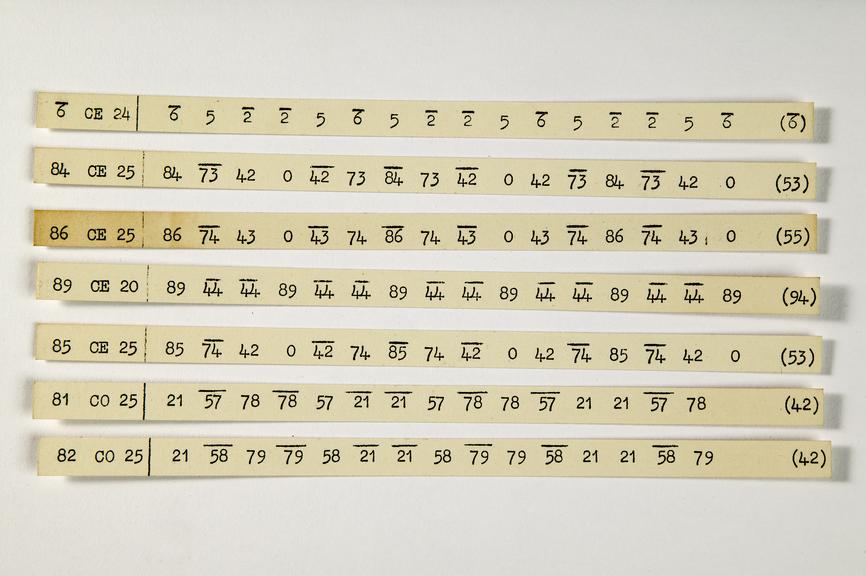 6̅ CE 24 6̅ 5 2̅ 2̅ 5 6̅ 5 2̅ 2̅ 5 6̅ 5 2̅ 2̅ 5 6̅ (6̅)
84 CE 25 84 7̅3̅ 42 0 4̅2̅ 73 8̅4̅ 73 4̅2̅ 0 42 7̅3̅ 84 7̅3̅ 42 0 (53)
86 CE 25 86 7̅4̅ 43 0 4̅3̅ 74 8̅6̅ 74 4̅3̅ 0 43 7̅4̅ 86 7̅4̅ 43 0 (55)
89 CE 20 89 4̅4̅ 4̅4̅ 89 4̅4̅ 4̅4̅ 89 4̅4̅ 4̅4̅ 89 4̅4̅ 4̅4̅ 89 4̅4̅ 4̅4̅ 89 (94)
85 CE 25 85 7̅4̅ 42 0 4̅2̅ 74 8̅5̅ 74 4̅2̅ 0 42 7̅4̅ 85 7̅4̅ 42 0 (53)
81 CO 25 21 5̅7̅ 78 7̅8̅ 57 2̅1̅ 2̅1̅ 57 7̅8̅ 78 5̅7̅ 21 21 5̅7̅ 78 (42)
82 CO 25 21 5̅8̅ 79 7̅9̅ 58 2̅1̅ 2̅1̅ 58 7̅9̅ 79 5̅8̅ 21 21 5̅8̅ 79 (42)